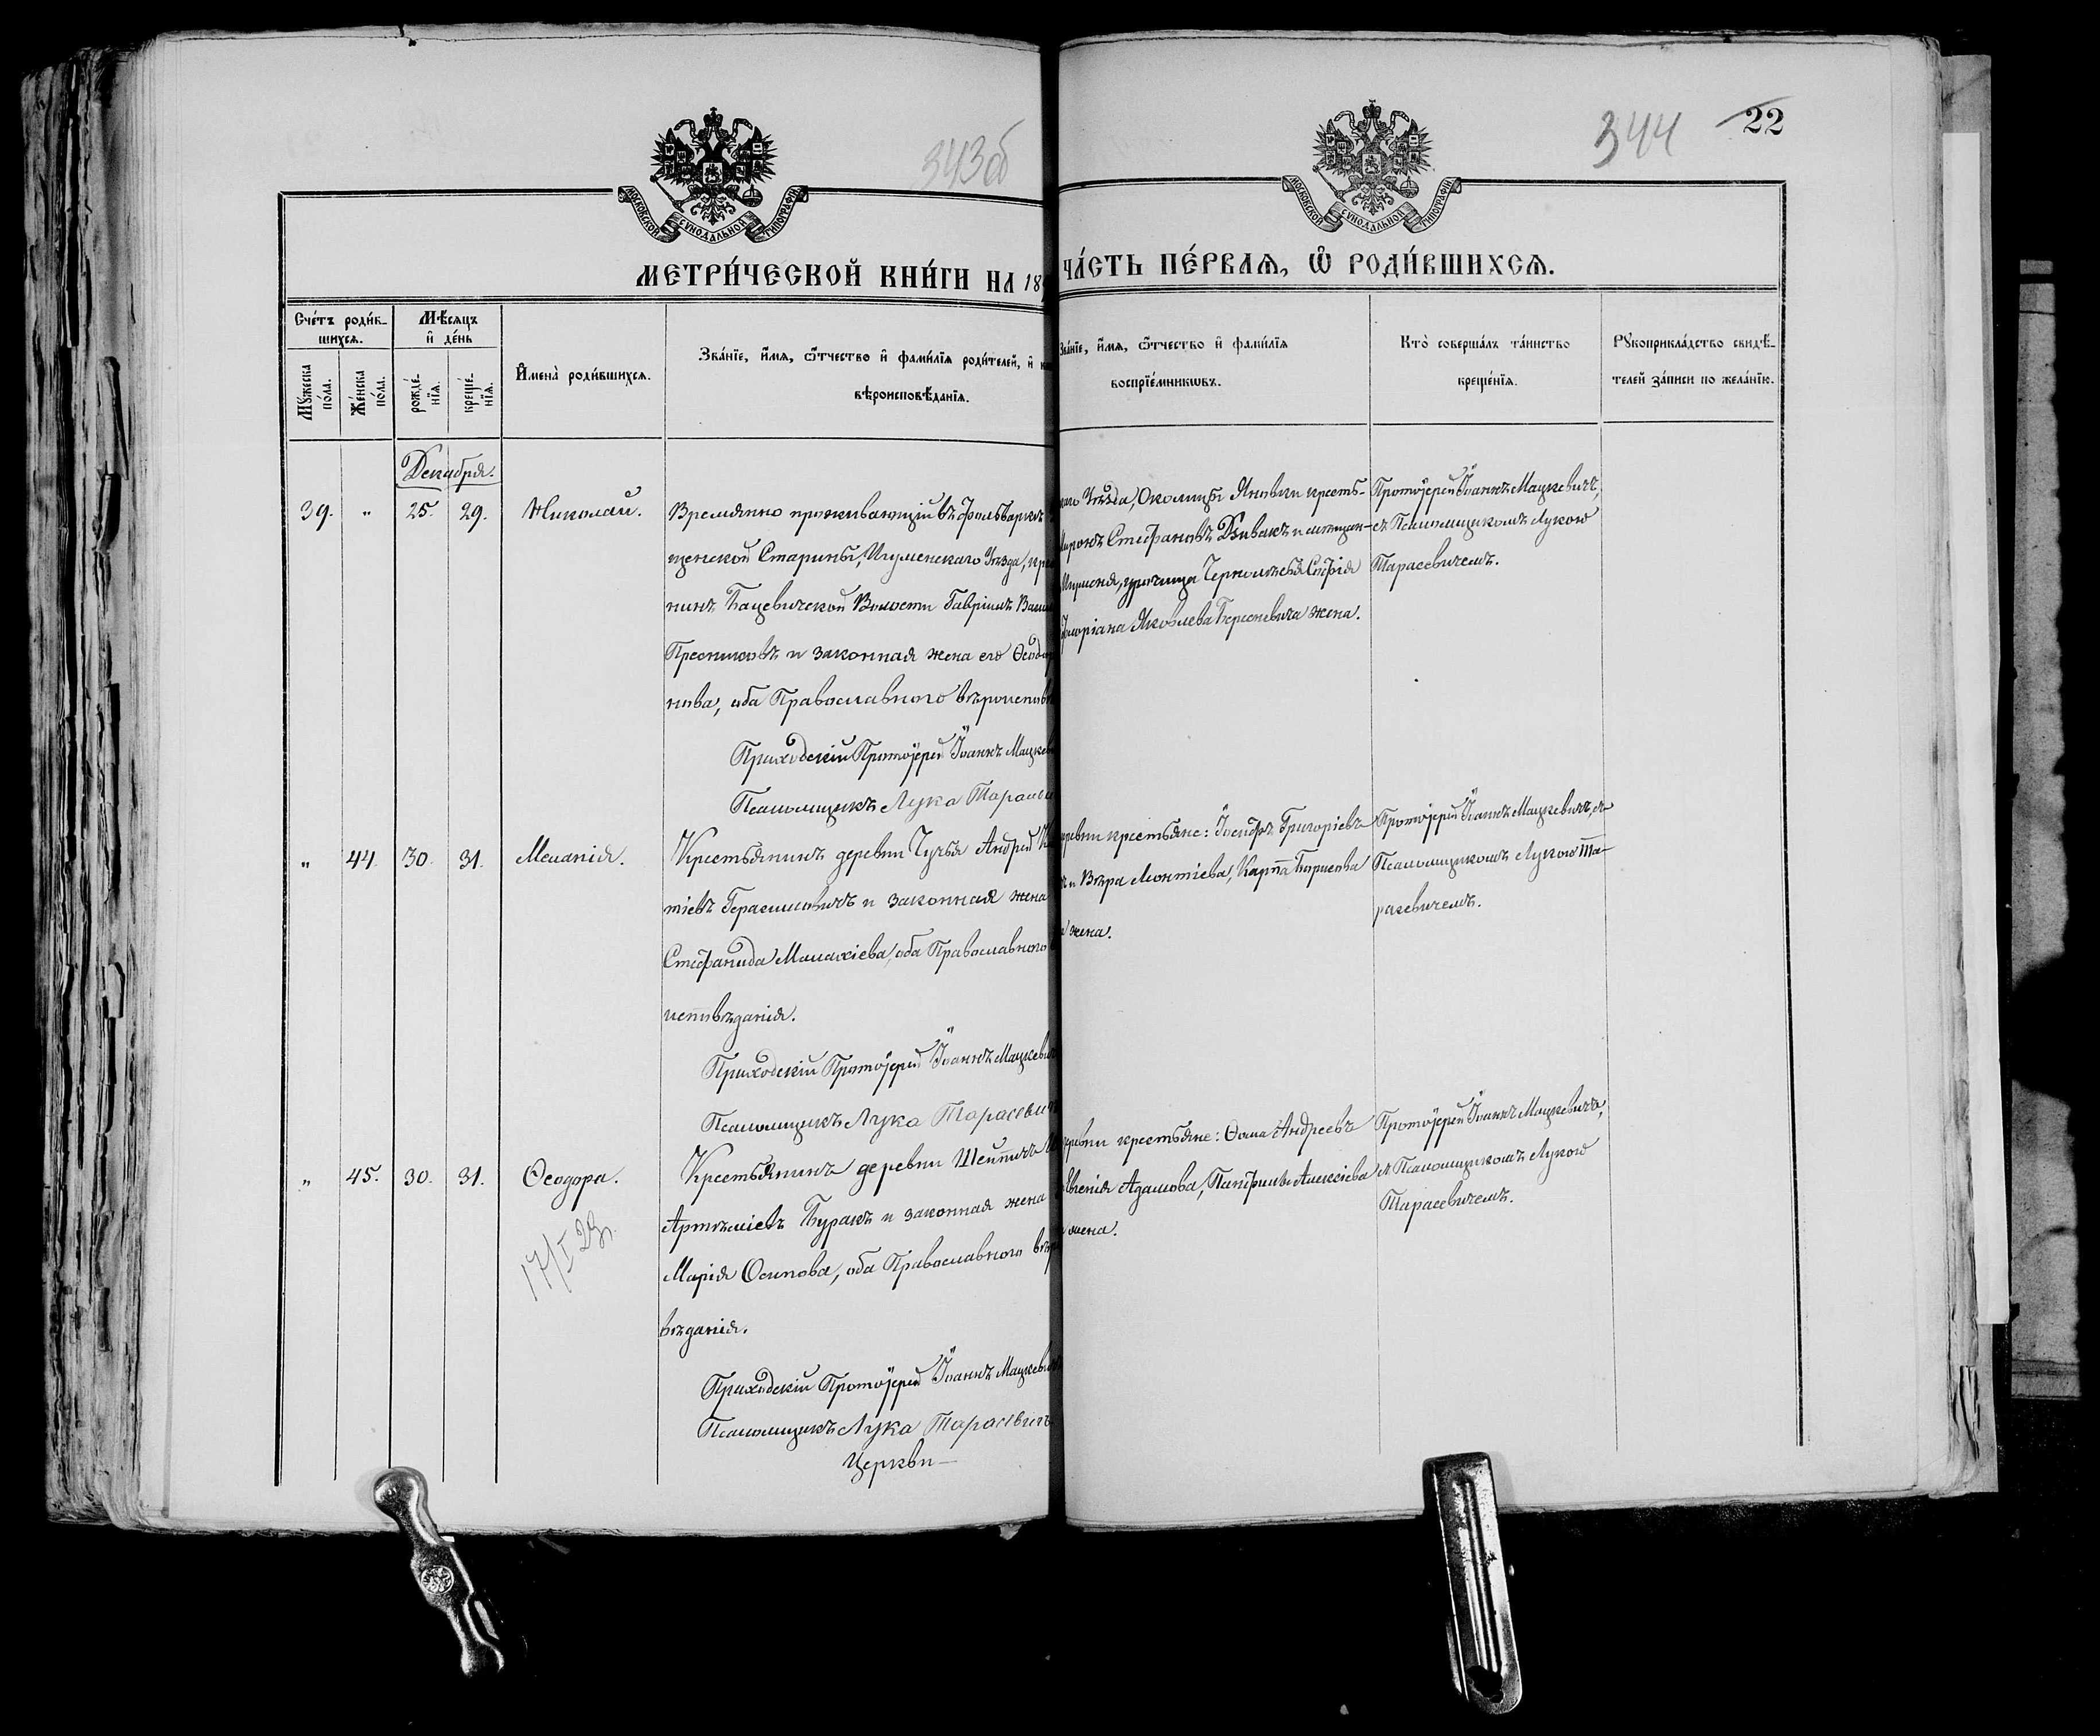 343об
344
22
МОСКОВСКОЙ СѴНОДАЛЬНОЙ ТИПОГРАФІИ
МОСКОВСКОЙ СѴНОДАЛЬНОЙ ТИПОГРАФІИ
МЕТРИ́ЧЕСКОЙ КНИ́ГИ НА 18
ЧА́СТЬ ПЕ́РВАѦ, Ѡ҆ РОДИ́ВШИХСѦ.
Сче́тъ роди́в-
шихсѧ.
Мꙋ́жеска
по́ла.
Же́нска
по́ла.
Мѣ́сѧцъ
и҆ де́нь
рожде́-
нїѧ.
креще́-
нїѧ.
И҆мена̀ роди́вшихсѧ.
Зва́нїе, и҆́мѧ, ѻ҆́тчество и҆ фами́лїѧ роди́телей, и҆
вѣроисповѣ́данїѧ.
Зва́нїе, и҆́мѧ, ѻ҆́тчество и҆ фами́лїѧ
воспрїе́мникѡвъ.
Кто̀ соверша́лъ та́инство
креще́нїѧ.
Рꙋкоприкла́дство свидѣ́-
телей за́писи по жела́нїю.
Декабря.
39. " 25. 29. Николай.
Временно проживающій въ фольваркѣ
щенской Старины, Игуменскаго Уѣзда, кре
нинъ Бацевичской Волости Гавріилъ Васи
и законная жена его Ѳеод
нова, оба Православнаго вѣроисповѣ
Приходскій Протоіерей Іоаннъ Мацкев
Псаломщикъ Лука Тарасеви
Уѣзда, Околицы Яновки кресть-
Миронъ Стефановъ Дзивакъ и мѣщан-
Софія
Яковлева жена.
Протоіерей Іоаннъ Мацкевичъ,
съ Псаломщикомъ Лукою
Тарасевичемъ.
" 44. 30. 31. Меланія.
Крестьянинъ деревни Чучья Андрей
тіевъ Герасимовичъ и законная жена
Стефанида Малахіева, оба Православнаго
исповѣданія.
Приходскій Протоіерей Іоаннъ Мацкевич
Псаломщикъ Лука Тарасевич
деревни крестьяне: Іосифъ Григоріевъ
и Вѣра Леонтіева, Карпа Борисова
жена.
Протоіерей Іоаннъ Мацкевичъ, съ
Псаломщикомъ Лукою Та-
расевичемъ.
" 45. 30. 31. Ѳеодора.
17/I 23г.
Крестьянинъ деревни
Артеміевъ Буракъ и законная жена
Марія Осипова, оба Православнаго вѣро
вѣданія.
Приходскій Протоіерей Іоаннъ Мацкевич
Псаломщикъ Лука Тарасевичъ
Церкви —
деревни крестьяне: Ѳома Андреевъ
Адамова, Панфила Алексіева
жена.
Протоіерей Іоаннъ Мацкевичъ,
съ Псаломщикомъ Лукою
Тарасевичемъ.